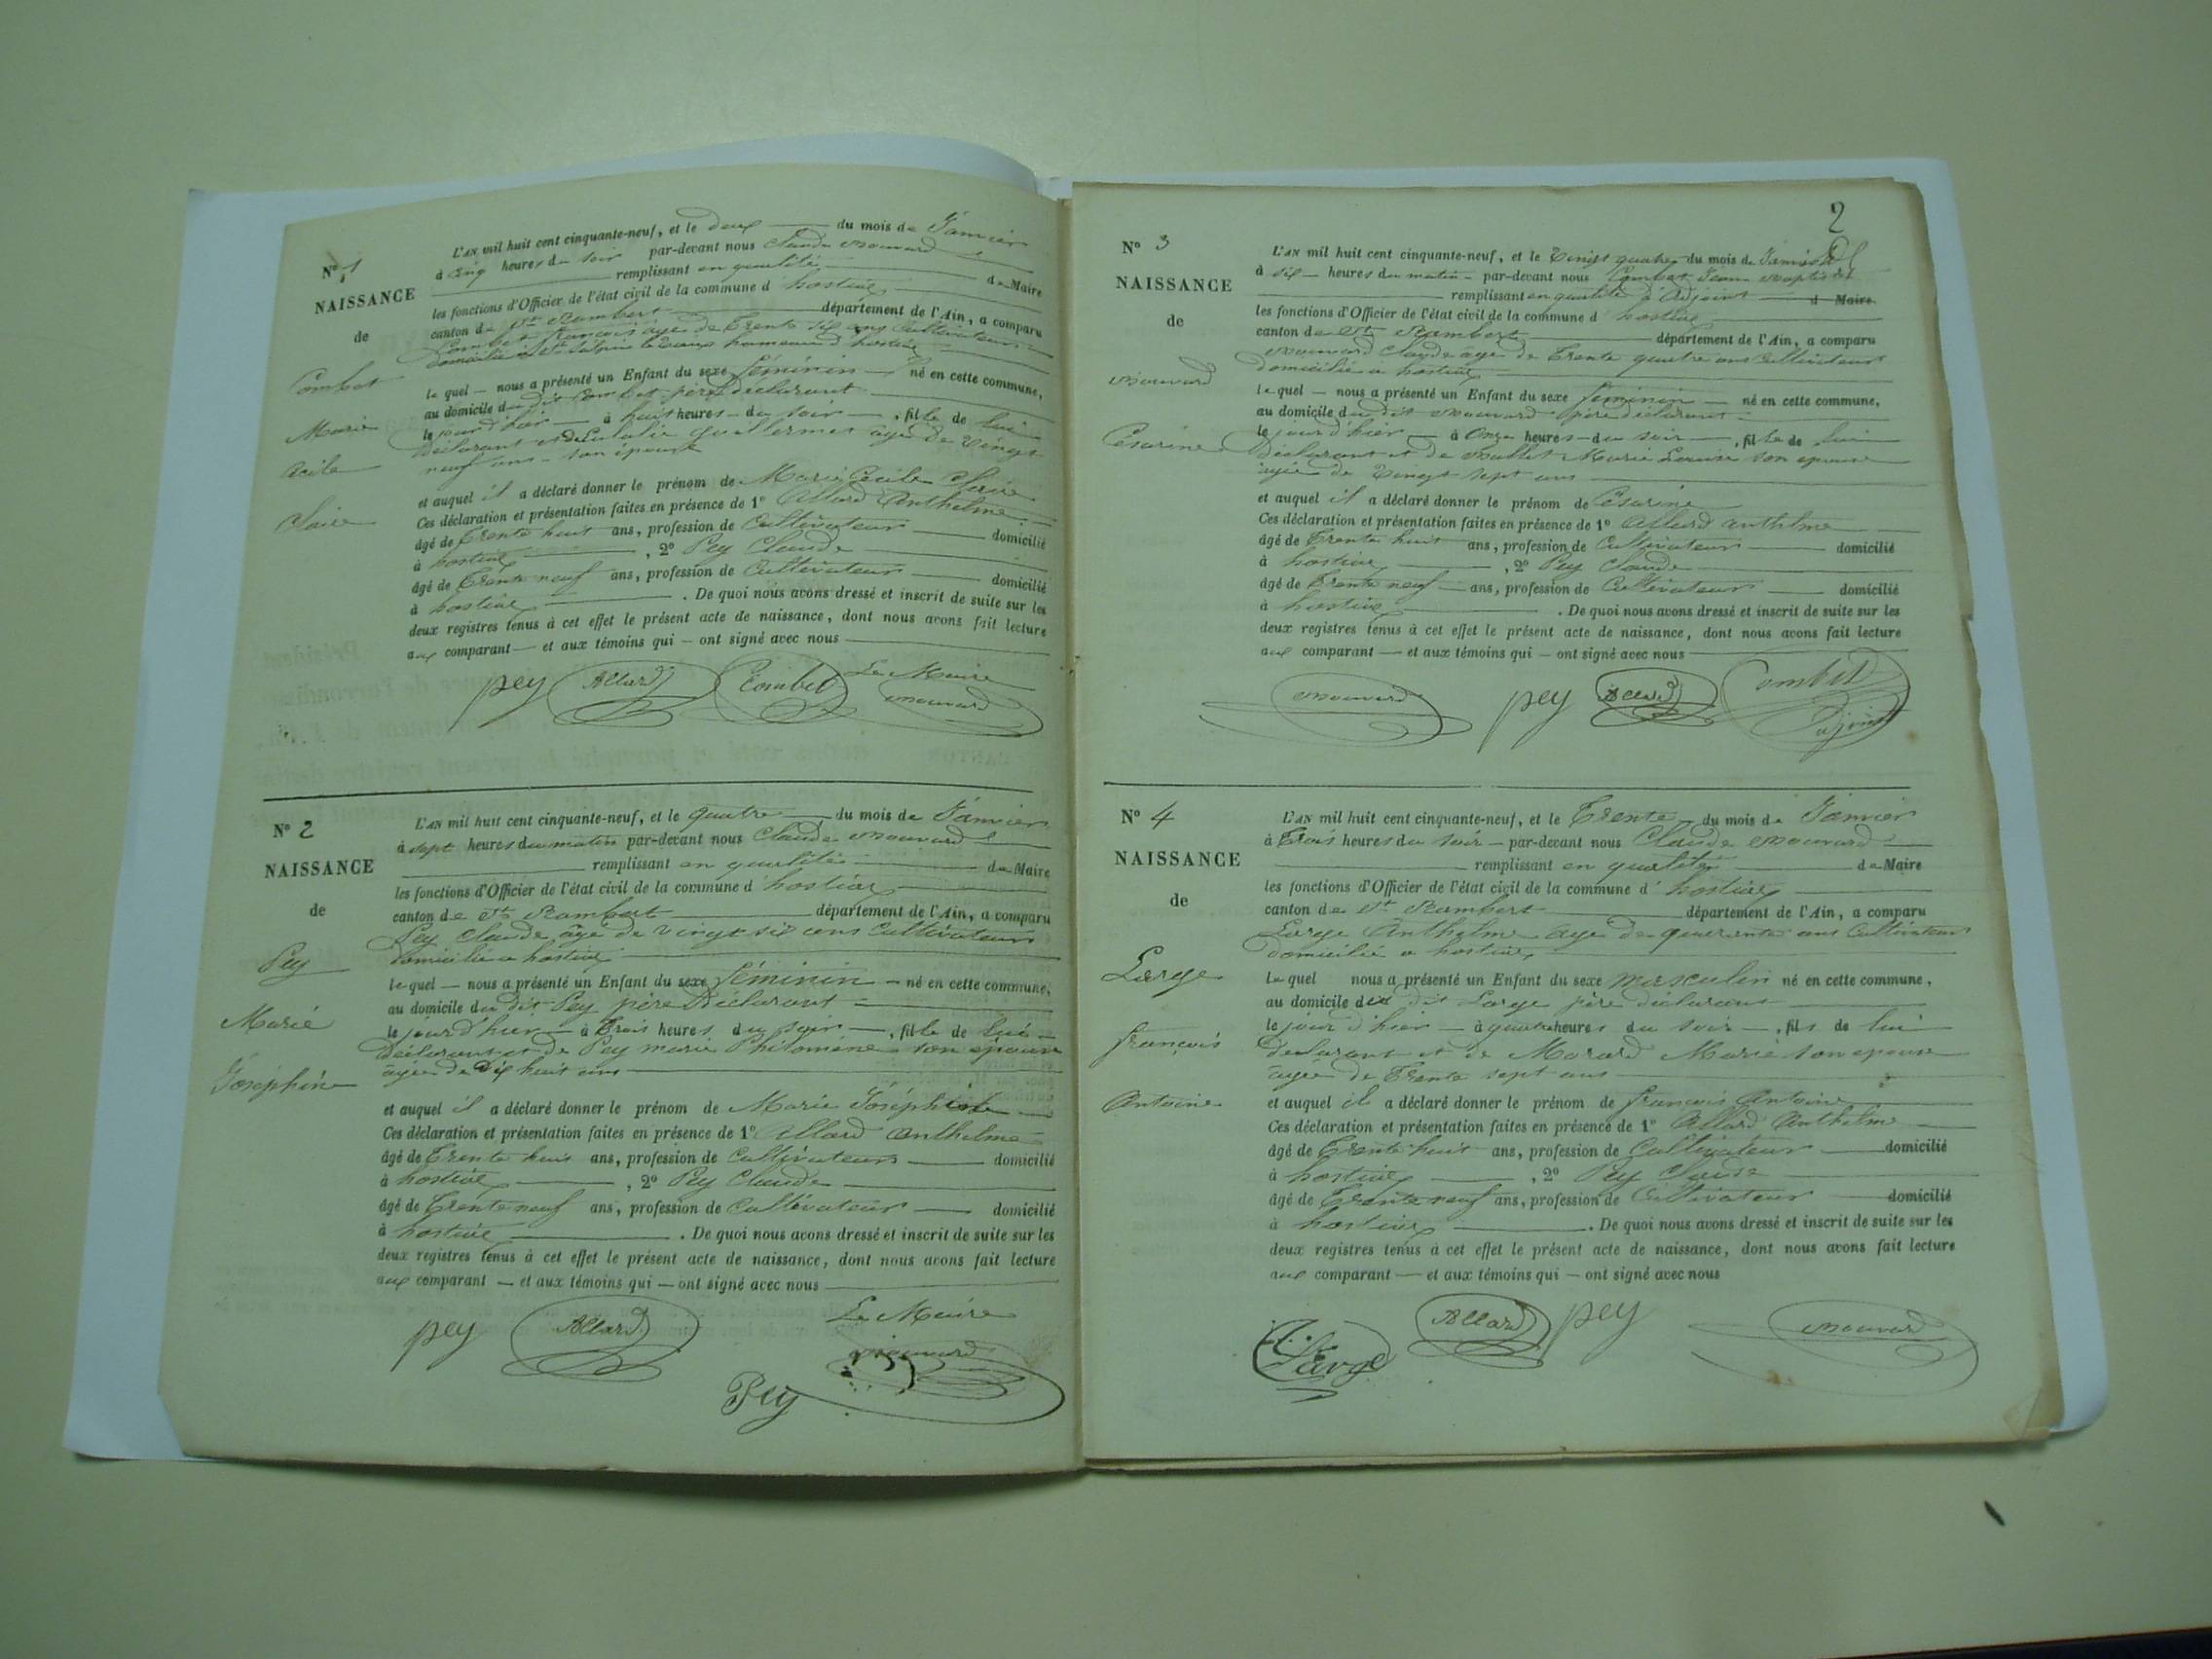 N° 1
NAISSANCE
de
Combet
Marie
Cécile
Claire
L'AN mil huit cent cinquante-neuf, et le deux du mois de Janvier
à cinq heures du soir par-devant nous Claude Mouvard
remplissant en qualité de Maire
les fonctions d'Officier de l'état civil de la commune d'hostiaz
canton de St Rambert département de l'Ain, a comparu
Combet françois âgé de trente six ans Cultivateur
domicilié hameau d'hostiaz
le quel nous a présenté un Enfant du sexe féminin né en cette commune,
au domicile du dit Combet père déclarant
le jour d'hier à huit heures du soir, fille de lui
déclarant et de Eulalie Guillermet âgée de vingt
neuf ans son épouse
et auquel il a déclaré donner le prénom de Marie Cécile Claire
Ces déclaration et présentation faites en présence de 1° Allard Anthelme
âgé de trente huit ans, profession de Cultivateur domicilié
à hostiaz, 2° Pey Claude
âgé de trente neuf ans, profession de Cultivateur domicilié
à hostiaz. De quoi nous avons dressé et inscrit de suite sur les
deux registres tenus à cet effet le présent acte de naissance, dont nous avons fait lecture
aux comparant et aux témoins qui ont signé avec nous
Le Maire
pey Allard Combet Mouvard
N° 2
NAISSANCE
de
Pey
Marie
Joséphine
L'AN mil huit cent cinquante-neuf, et le quatre du mois de Janvier
à sept heures du matin par-devant nous Claude Mouvard
remplissant en qualité de Maire
les fonctions d'Officier de l'état civil de la commune d'hostiaz
canton de St Rambert département de l'Ain, a comparu
Pey Claude âgé de vingt six ans Cultivateur
domicilié a hostiaz
le quel nous a présenté un Enfant du sexe féminin né en cette commune,
au domicile du dit Pey père déclarant
le jour d'hier à trois heures du soir, fille de lui
déclarant et de Pey marie Philomène son épouse
âgée de dix huit ans
et auquel il a déclaré donner le prénom de Marie Joséphine
Ces déclaration et présentation faites en présence de 1° Allard Anthelme
âgé de trente huit ans, profession de Cultivateur domicilié
à hostiaz, 2° Pey Claude
âgé de trente neuf ans, profession de Cultivateur domicilié
à hostiaz. De quoi nous avons dressé et inscrit de suite sur les
deux registres tenus à cet effet le présent acte de naissance, dont nous avons fait lecture
aux comparant et aux témoins qui ont signé avec nous
Le Maire
pey Allard Mouvard
Pey
2
N° 3
NAISSANCE
de
Mouvard
Césarine
L'AN mil huit cent cinquante-neuf, et le vingt quatre du mois de Janvier
à six heures du matin par-devant nous Combet Jean Baptiste
remplissant en qualité d'Adjoint d Maire
les fonctions d'Officier de l'état civil de la commune d'hostiaz
canton de St Rambert département de l'Ain, a comparu
Mouvard Claude âgé de trente quatre ans Cultivateur
domicilié a hostiaz
le quel nous a présenté un Enfant du sexe féminin né en cette commune,
au domicile du dit Mouvard père déclarant
le jour d'hier à onze heures du soir, fille de lui
déclarant et de Marie Louise son épouse
âgée de vingt sept ans
et auquel il a déclaré donner le prénom de Césarine
Ces déclaration et présentation faites en présence de 1° Allard anthelme
âgé de trente huit ans, profession de Cultivateur domicilié
à hostiaz, 2° Pey Claude
âgé de trente neuf ans, profession de Cultivateur domicilié
à hostiaz. De quoi nous avons dressé et inscrit de suite sur les
deux registres tenus à cet effet le présent acte de naissance, dont nous avons fait lecture
aux comparant et aux témoins qui ont signé avec nous
Mouvard pey Allard Combet
adjoint
N° 4
NAISSANCE
de
Large
françois
Antoine
L'AN mil huit cent cinquante-neuf, et le trente du mois de Janvier
à trois heures du soir par-devant nous Claude Mouvard
remplissant en qualité de Maire
les fonctions d'Officier de l'état civil de la commune d'hostiaz
canton de St Rambert département de l'Ain, a comparu
Large Anthelme age de quarante ans Cultivateur
domicilié a hostiaz
le quel nous a présenté un Enfant du sexe masculin né en cette commune,
au domicile du dit Large père déclarant
le jour d'hier à quatre heures du soir, fils de lui
déclarant et de Morard Marie son épouse
âgée de trente sept ans
et auquel il a déclaré donner le prénom de françois Antoine
Ces déclaration et présentation faites en présence de 1° Allard Anthelme
âgé de trente huit ans, profession de Cultivateur domicilié
à hostiaz, 2° Pey Claude
âgé de trente neuf ans, profession de Cultivateur domicilié
à hostiaz. De quoi nous avons dressé et inscrit de suite sur les
deux registres tenus à cet effet le présent acte de naissance, dont nous avons fait lecture
aux comparant et aux témoins qui ont signé avec nous
Large Allard pey Mouvard